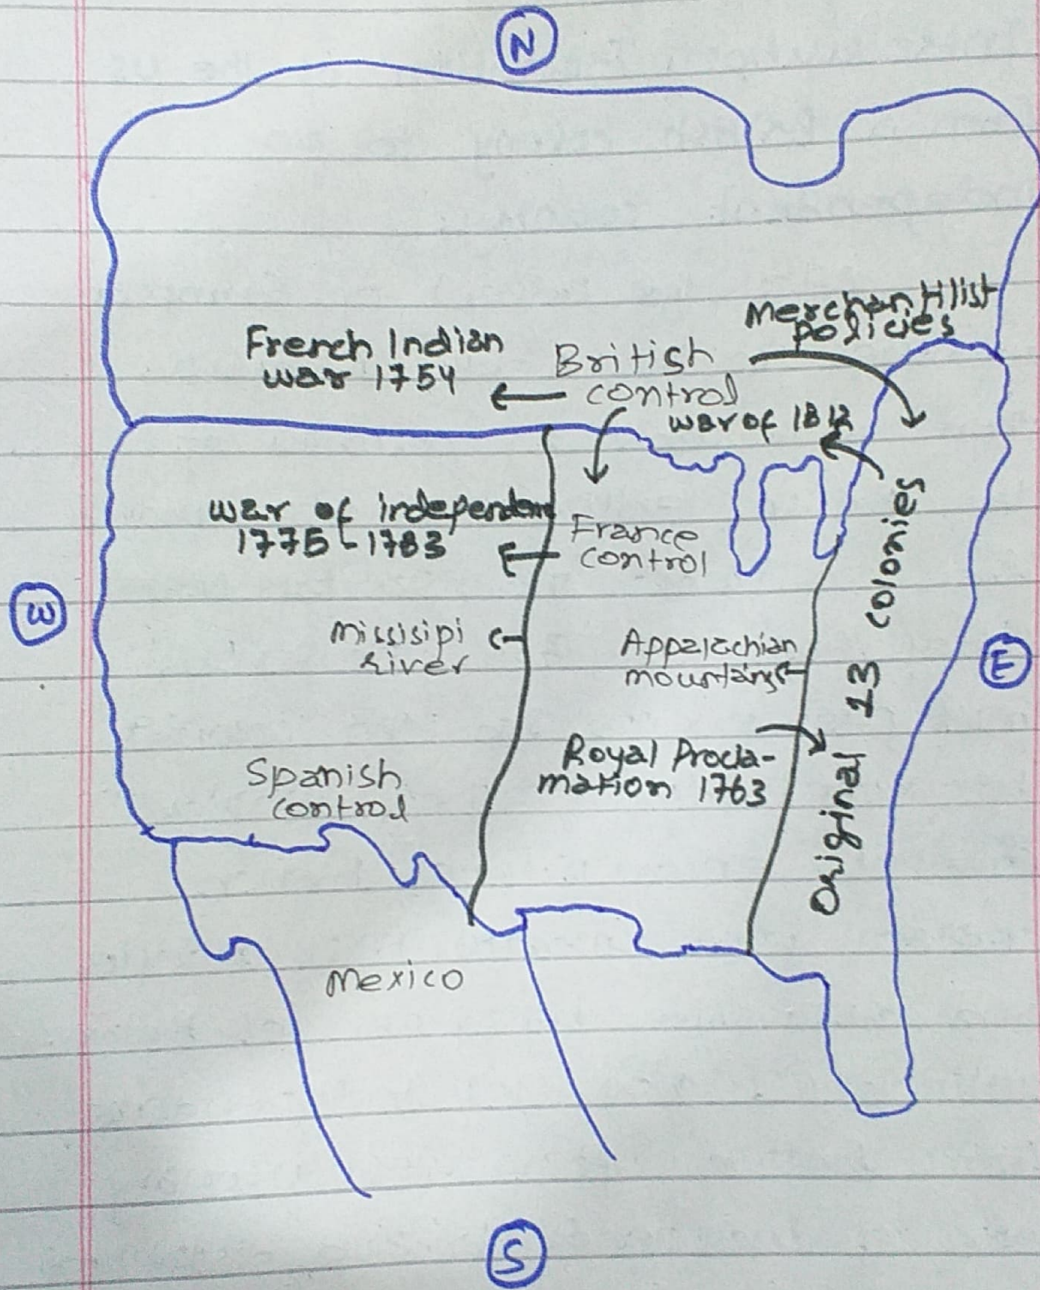 N
Merchantilist
policies
French Indian
war 1754
British
control
war of 1812
war of independent
1775-1783
France
control
colonies
W
Missisipi
river
Appalachian
mountains
E
13
Royal Procla-
mation 1763
Original
Spanish
control
Mexico
S